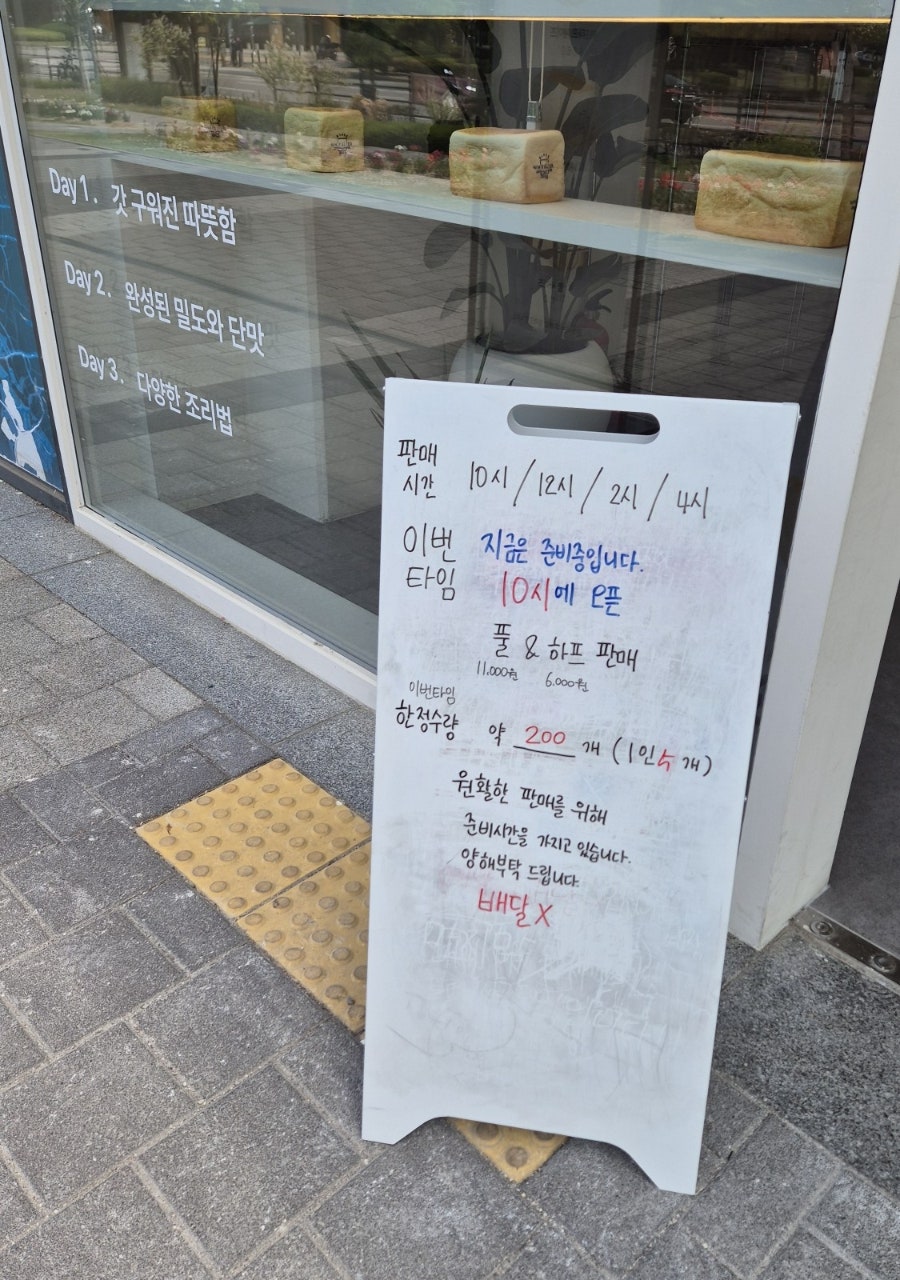 Day 1. 갓 구워진 따뜻함
Day 2. 완성된 밀도와 단맛
Day 3. 다양한 조리법
판매 시간 10시 / 12시 / 2시 / 4시
이번 타임 지금은 준비중입니다.
10시에 오픈
풀 & 하프 판매
11.000원 6.000원
이번타임
한정수량 약 200 개 (1인 5 개)
원활한 판매를 위해
준비시간을 가지고 있습니다.
양해부탁 드립니다.
배달 X